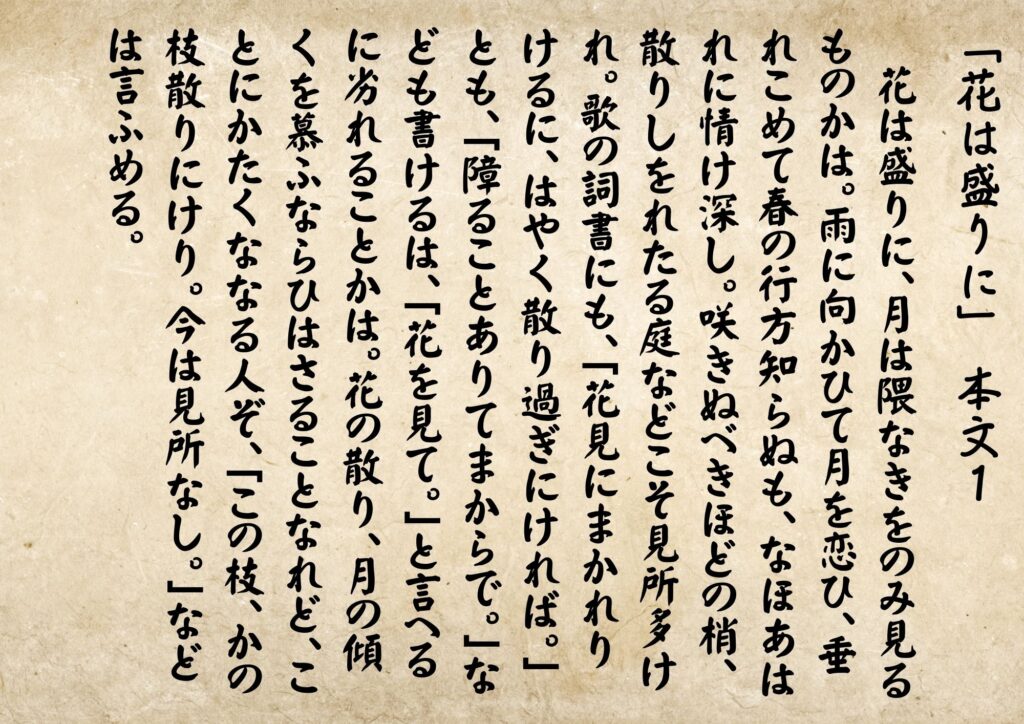 「花は盛りに」　本文１
花は盛りに、月は隈なきをのみ見る
ものかは。雨に向かひて月を恋ひ、垂
れこめて春の行方知らぬも、なほあは
れに情け深し。咲きぬべきほどの梢、
散りしをれたる庭などこそ見所多け
れ。歌の詞書にも、「花見にまかれり
けるに、はやく散り過ぎにければ。」
とも、「障ることありてまからで。」な
ども書けるは、「花を見て。」と言へる
に劣れることかは。花の散り、月の傾
くを慕ふならひはさることなれど、こ
とにかたくななる人ぞ、「この枝、かの
枝散りにけり。今は見所なし。」など
は言ふめる。